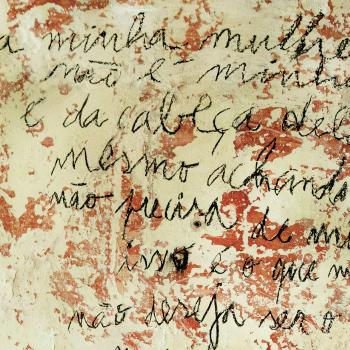 a minha mulhe
não é minh
é da cabeça del
mesmo achando
não de m
isso é o que m
não deseja ser o